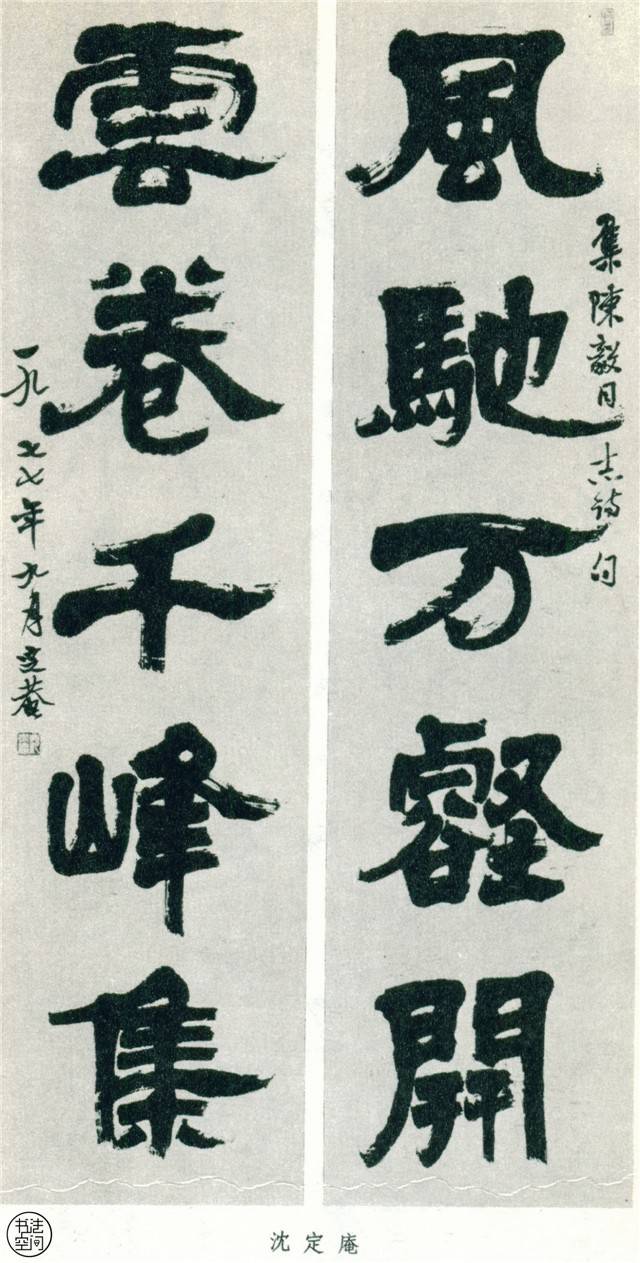 集陳毅同志詩句
風馳万壑開
雲卷千峰集
一九七七年九月定菴
沈定庵
书法空间